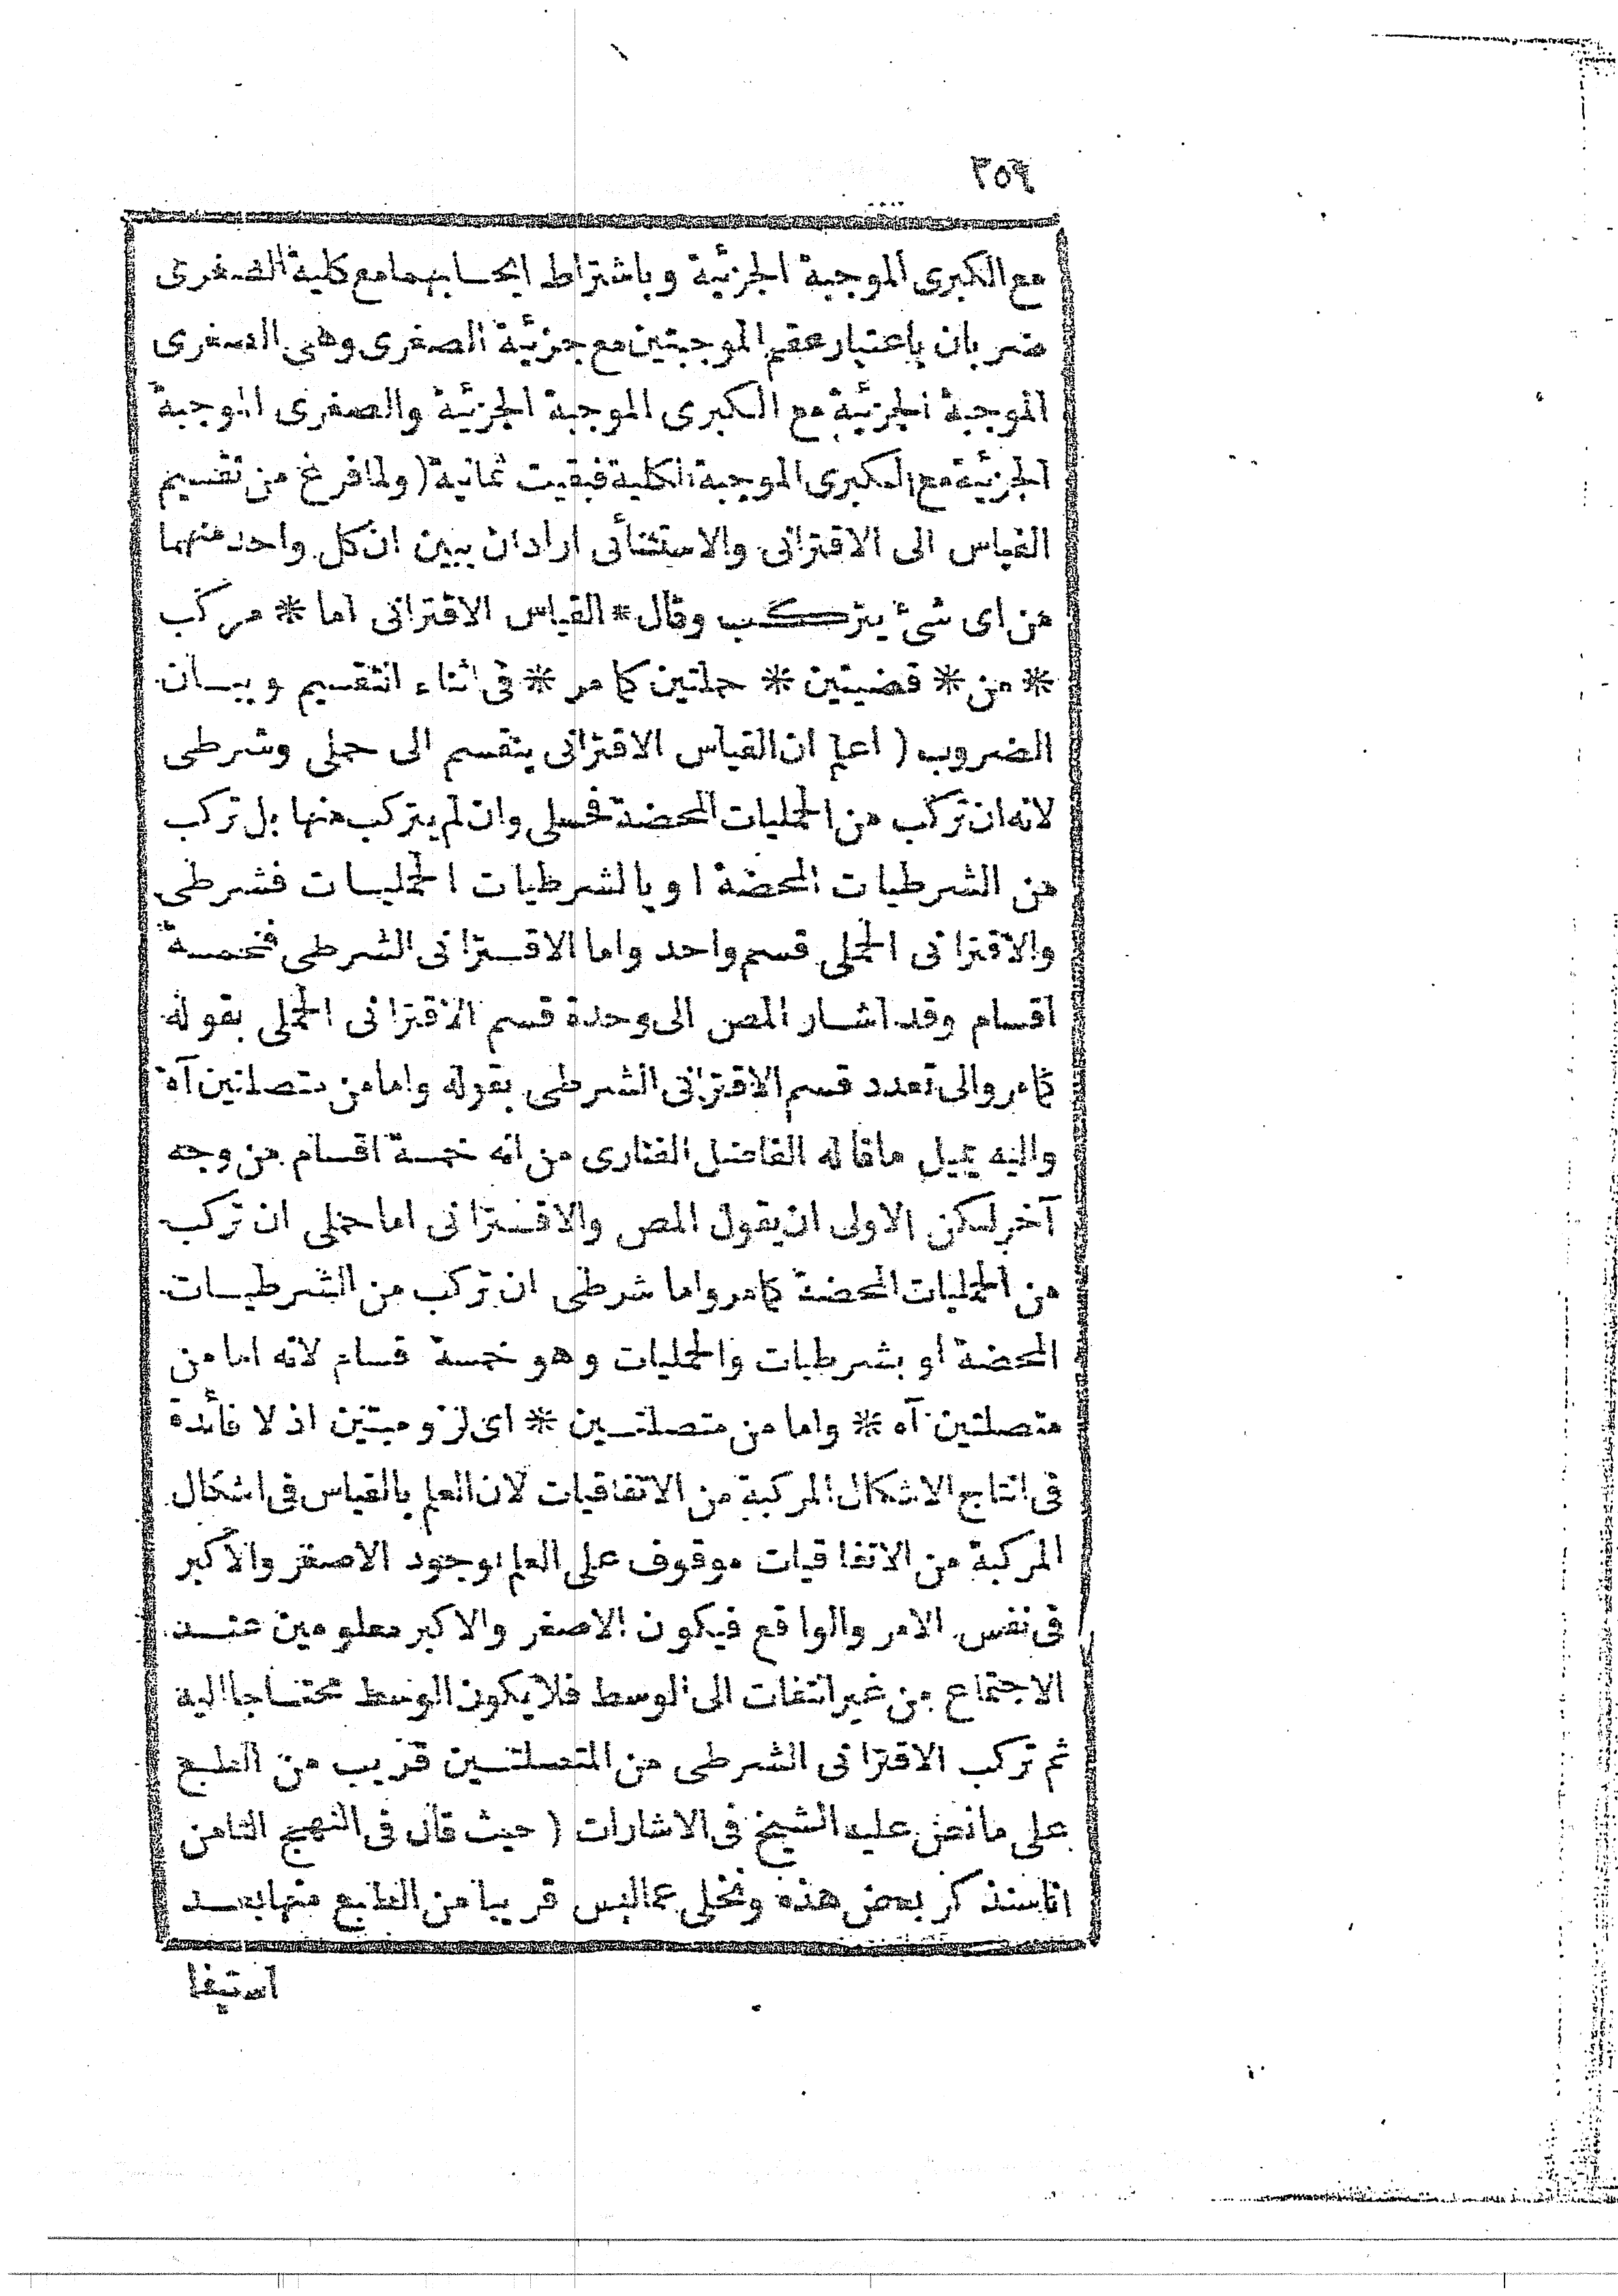 ٢٥٩
مع الكبرى الموجبة الجزئية وباشتراط ايجابهما مع كلية الصغرى
ضربان باعتبار عقم الموجبتين مع جزئية الصغرى وهى الصغرى
الموجبة الجزئية مع الكبرى الموجبة الجزئية والصغرى الموجبة
الجزئية مع الكبرى الموجبة الكلية فبقيت ثمانية (ولما فرغ من تقسيم
القياس الى الاقترانى والاستثنائى اراد ان يبين ان كل واحد منهما
من اى شئ يتركب وقال * القياس الاقترانى اما * مركب
* من * قضيتين * حمليتين كامر * فى اثناء التقسيم وبيان
الضروب ( اعلم ان القياس الاقترانى ينقسم الى حملى وشرطى
لانه ان تركب من الحمليات المحضة فحملى وان لم يتركب منها بل تركب
من الشرطيات المحضة او بالشرطيات الحمليات فشرطى
والاقترانى الحملى قسم واحد واما الاقترانى الشرطى فخمسة
اقسام وقد اشار المص الى وحدة قسم الاقترانى الحملى بقوله
كامر والى تعدد قسم الاقترانى الشرطى بقوله واما من متصلتين آه
واليه يميل ماقاله الفاضل الفنارى من انه خمسة اقسام من وجه
آخر لكن الاولى ان يقول المص والاقترانى اما حملى ان تركب
من الحمليات المحضة كامر واما شرطى ان تركب من الشرطيات
المحضة او بشرطيات والحمليات وهو خمسة قسام لانه اما من
متصلتين آه * واما من متصلتين * اى لزوميتين اذ لا فائدة
فى انتاج الاشكال المركبة من الاتفاقيات لان العلم بالقياس فى اشكال
المركبة من الاتفاقيات موقوف على العلم بوجود الاصغر والاكبر
فى نفس الامر والواقع فيكون الاصغر والاكبر معلومين عند
الاجتماع من غير التفات الى الوسط فلا يكون الوسط محتاجا اليه
ثم تركب الاقترانى الشرطى من المتصلتين قريب من الطبع
على مانص عليه الشيخ فى الاشارات ( حيث قال فى النهج الثامن
انا سنذكر بعض هذه ونخلى عماليس قريبا من الطبع منها بعد
استيفا